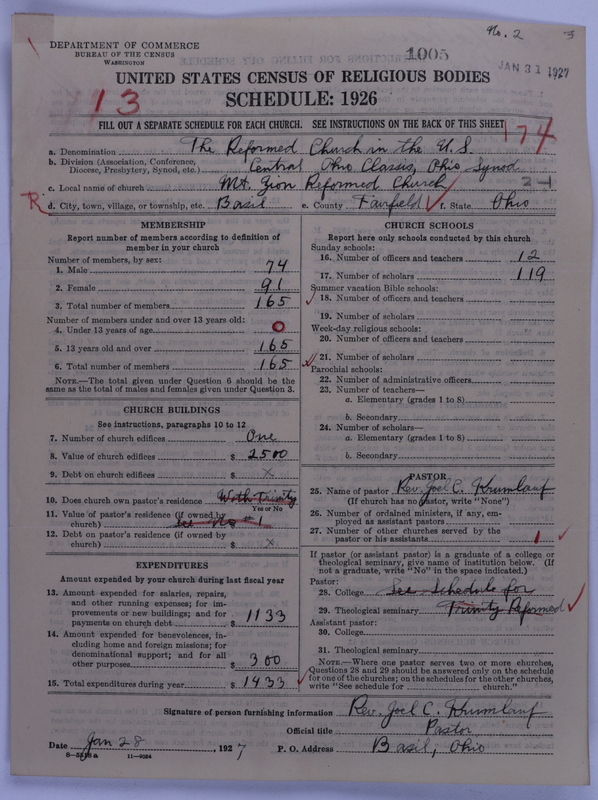 No. 2 3
DEPARTMENT OF COMMERCE
BUREAU OF THE CENSUS
WASHINGTON
1005
JAN 31 1927
UNITED STATES CENSUS OF RELIGIOUS BODIES
13
SCHEDULE: 1926
FILL OUT A SEPARATE SCHEDULE FOR EACH CHURCH. SEE INSTRUCTIONS ON THE BACK OF THIS SHEET
174
a. Denomination The Reformed Church in the U.S.
b. Division (Association, Conference, Diocese, Presbytery, Synod, etc.) Central Ohio Classis, Ohio Synod
c. Local name of church Mt. Zion Reformed Church 2-1
R d. City, town, village, or township, etc. Basil e. County Fairfield f. State Ohio
MEMBERSHIP
Report number of members according to definition of
member in your church
Number of members, by sex:
1. Male 74
2. Female 91
3. Total number of members 165
Number of members under and over 13 years old:
4. Under 13 years of age 0
5. 13 years old and over 165
6. Total number of members 165
NOTE.—The total given under Question 6 should be the
same as the total of males and females given under Question 3.
CHURCH BUILDINGS
See instructions, paragraphs 10 to 12
7. Number of church edifices One
8. Value of church edifices $ 2500
9. Debt on church edifices $ x
10. Does church own pastor's residence With Trinity
Yes or No
11. Value of pastor's residence (if owned by
church) $ See No #1
12. Debt on pastor's residence (if owned by
church) $ x
EXPENDITURES
Amount expended by your church during last fiscal year
13. Amount expended for salaries, repairs,
and other running expenses; for im-
provements or new buildings; and for
payments on church debt $ 1133
14. Amount expended for benevolences, in-
cluding home and foreign missions; for
denominational support; and for all
other purposes $ 300
15. Total expenditures during year $ 1433
CHURCH SCHOOLS
Report here only schools conducted by this church
Sunday schools:
16. Number of officers and teachers 12
17. Number of scholars 119
Summer vacation Bible schools:
18. Number of officers and teachers
19. Number of scholars
Week-day religious schools:
20. Number of officers and teachers
21. Number of scholars
Parochial schools:
22. Number of administrative officers
23. Number of teachers—
a. Elementary (grades 1 to 8)
b. Secondary
24. Number of scholars—
a. Elementary (grades 1 to 8)
b. Secondary
PASTOR
25. Name of pastor Rev. Joel C. Krumlauf
(If church has no pastor, write "None")
26. Number of ordained ministers, if any, em-
ployed as assistant pastors
27. Number of other churches served by the
pastor or his assistants 1
If pastor (or assistant pastor) is a graduate of a college or
theological seminary, give name of institution below. (If
not a graduate, write "No" in the space indicated.)
Pastor:
28. College See Schedule for
29. Theological seminary Trinity Reformed
Assistant pastor:
30. College
31. Theological seminary
NOTE.—Where one pastor serves two or more churches,
Questions 28 and 29 should be answered only on the schedule
for one of the churches; on the schedules for the other churches,
write "See schedule for church."
Signature of person furnishing information Rev. Joel C. Krumlauf
Official title Pastor
Date Jan 28, 1927 P. O. Address Basil, Ohio
11—9054